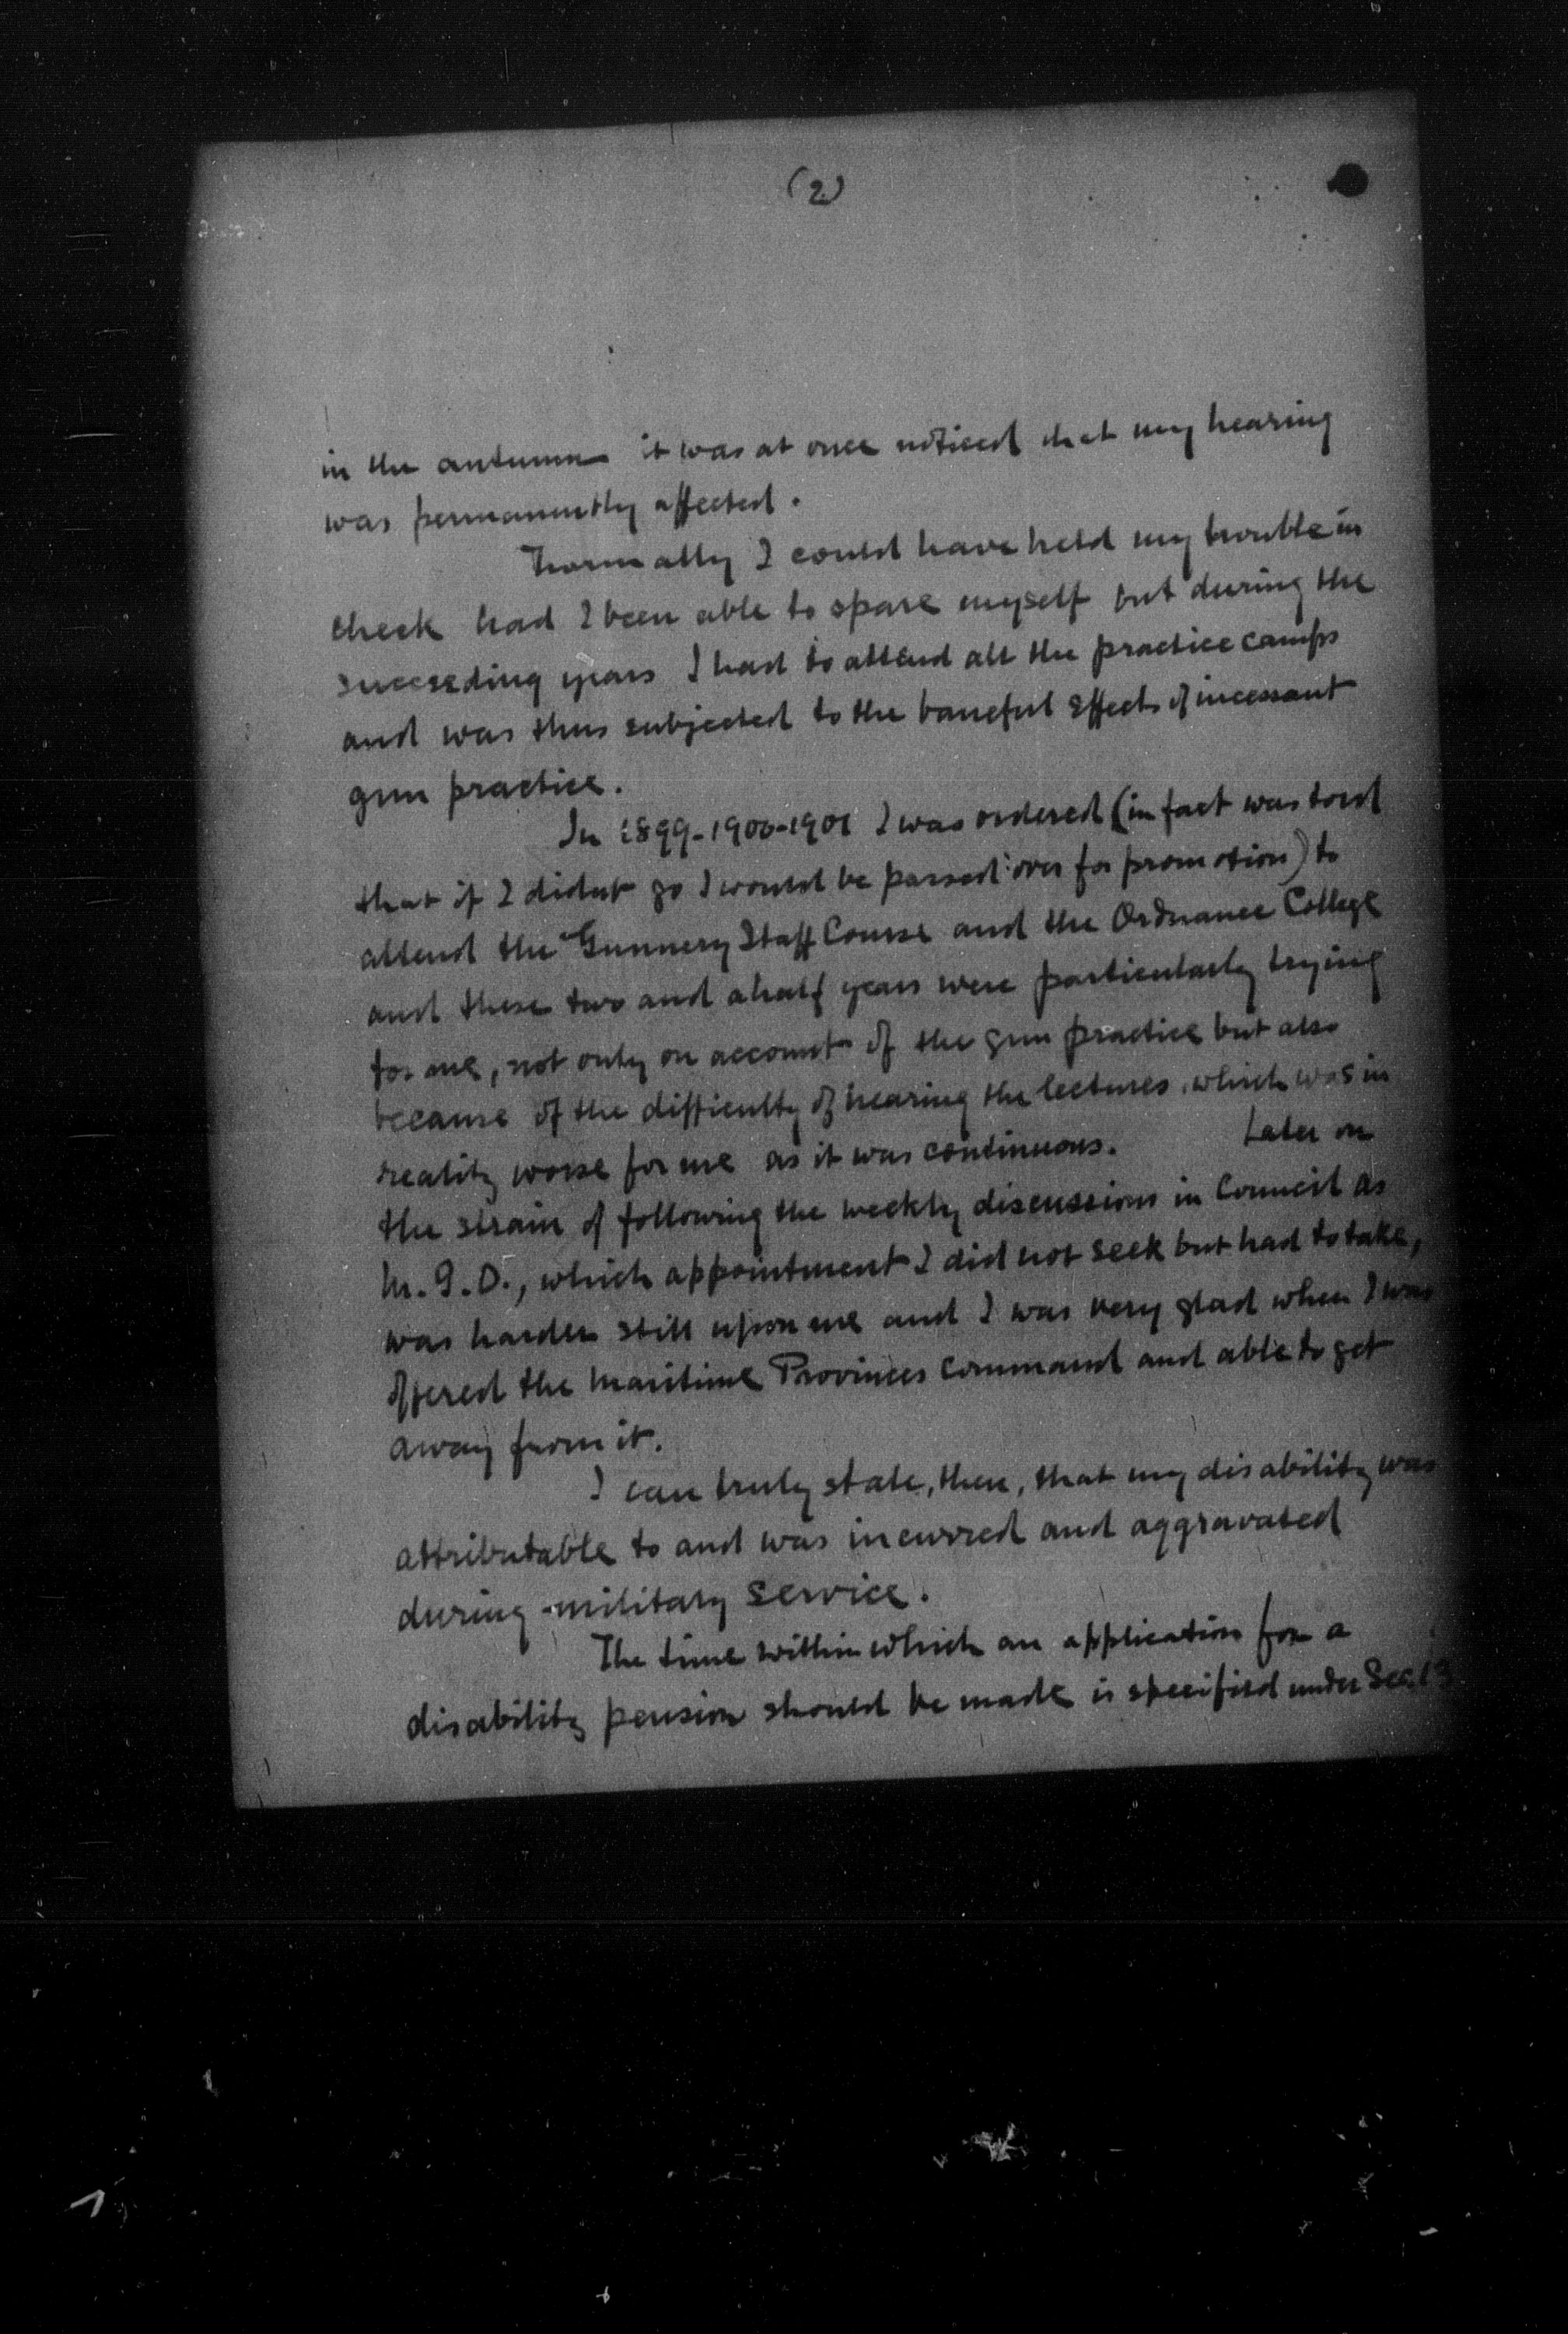 (2)
in the autumn it was at once noticed that my hearing
was permanently affected.
Normally I could have held my trouble in
check had I been able to spare myself but during the
succeeding years I had to attend all the practice camps
and was thus subjected to the baneful effects of incessant
gun practice.
In 1899-1900-1901 I was ordered (in fact was told
that if I didnt go I would be passed over for promotion) to
attend the Gunnery Staff Course and the Ordnance College
and these two and a half years were particularly trying
for me, not only on account of the gun practice but also
because of the difficulty of hearing the lectures, which was in
reality worse for me as it was continuous. Later on
the strain of following the weekly discussions in Council as
M.G.O., which appointment I did not seek but had to take,
was harder still upon me and I was very glad when I was
offered the Maritime Provinces Command and able to get
away from it.
I can truly state, then, that my disability was
attributable to and was incurred and aggravated
during military service.
The time within which an application for a
disability pension should be made is specified under Sec. 13